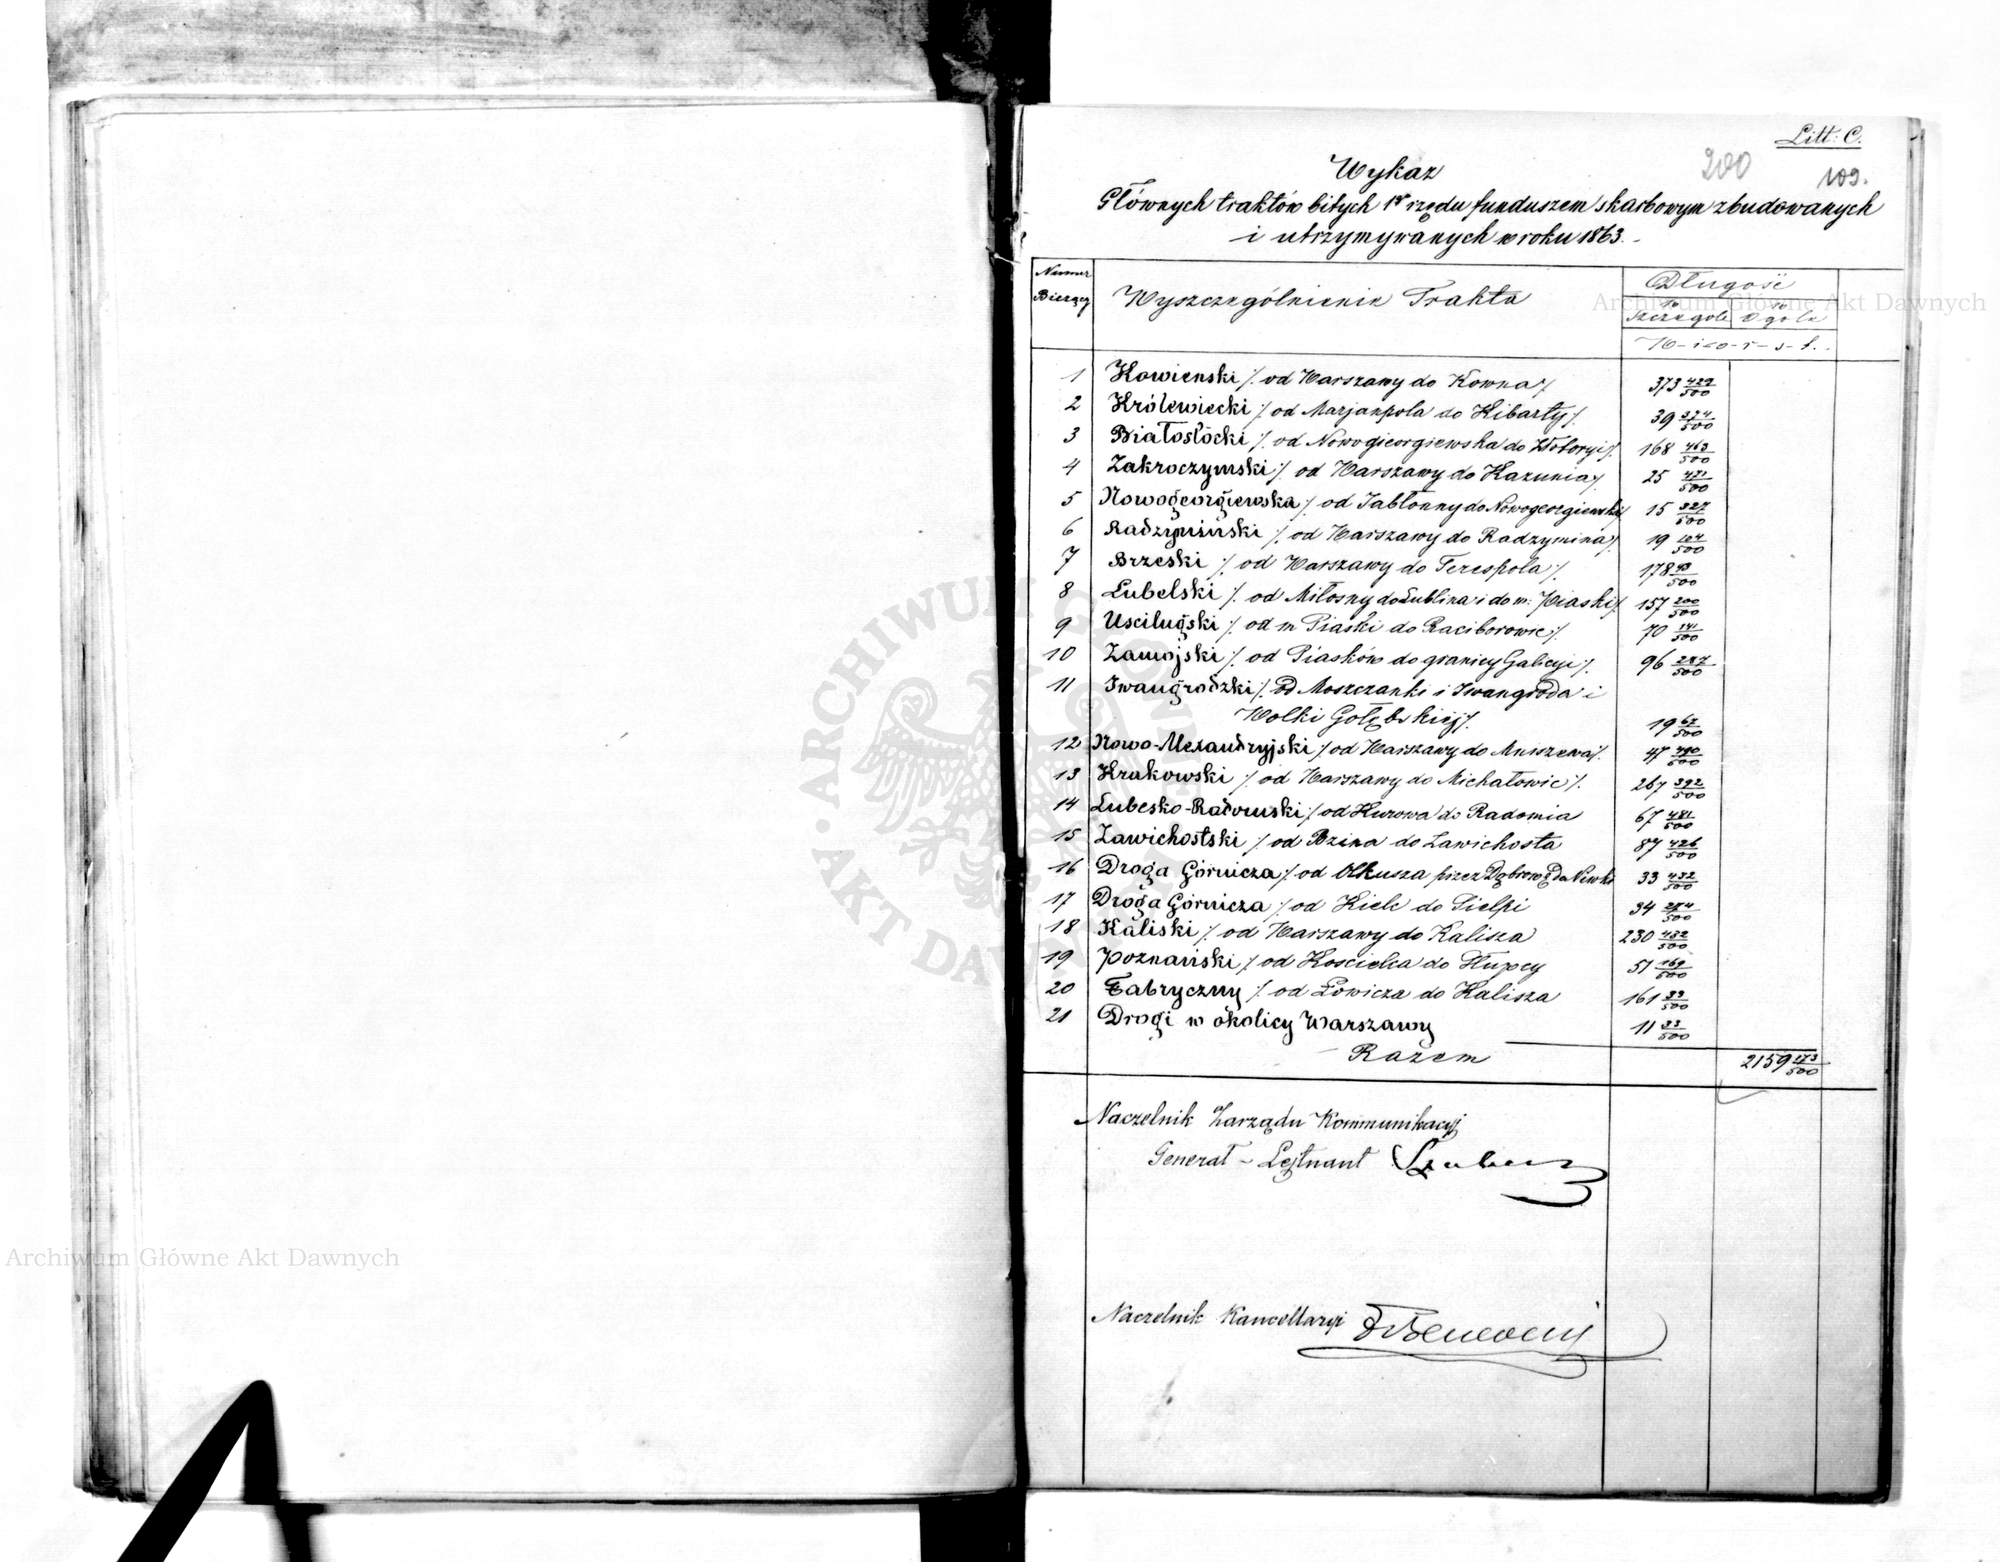 Litt: C.
200
109.
Wykaz
Głównych traktów bitych 1º rzędu funduszem skarbowym zbudowanych
i utrzymywanych w roku 1863.
Numer Bieżący
Wyszczególnienie Traktu
Długość
w Szczególe
w Ogóle
W-i-o-r-s-t.
1 Kowieński /. od Warszawy do Kowna ./ 373 429/500
2 Królewiecki /. od Marjanpola do Kibarty ./ 39 374/500
3 Białostocki /. od Nowogieorgiewska do Złotoryi ./ 168 463/500
4 Zakroczymski /. od Warszawy do Kazunia ./ 25 421/500
5 Nowogeorgiewska /. od Jabłonny do Nowogeorgiewska ./ 15 327/500
6 Radzymiński /. od Warszawy do Radzymina ./ 19 104/500
7 Brzeski /. od Warszawy do Terespola ./ 178 93/500
8 Lubelski /. od Miłosny do Lublina i do m: Piaski ./ 157 200/500
9 Usciługski /. od m Piaski do Raciborowic ./ 70 141/500
10 Zamojski /. od Piasków do granicy Galicyi ./ 96 287/500
11 Iwangrodzki /. od Moszczanki i Iwangroda i
Wolki Gołębskiej ./ 19 67/500
12 Nowo-Alexandryjski /. od Warszawy do Mniszewa ./ 47 490/500
13 Krakowski /. od Warszawy do Michałowic ./ 267 392/500
14 Lubesko-Radomski /. od Kurowa do Radomia 67 481/500
15 Zawichostski /. od Bzina do Zawichosta 87 426/500
16 Droga Górnicza /. od Olkusza przez Dąbrowę do Niwki 33 432/500
17 Droga Górnicza /. od Kielc do Sielpi 34 284/500
18 Kaliski /. od Warszawy do Kalisza 230 432/500
19 Poznański /. od Koscielca do Słupcy 51 169/500
20 Fabryczny /. od Łowicza do Kalisza 161 39/500
21 Drogi w okolicy Warszawy 11 33/500
Razem 2159 173/500
Naczelnik Zarządu Kommunikacyj
Generał - Lejtnant
Naczelnik Kancellaryi
Archiwum Główne Akt Dawnych
Archiwum Główne Akt Dawnych
ARCHIWUM GŁÓWNE · AKT DAWNYCH